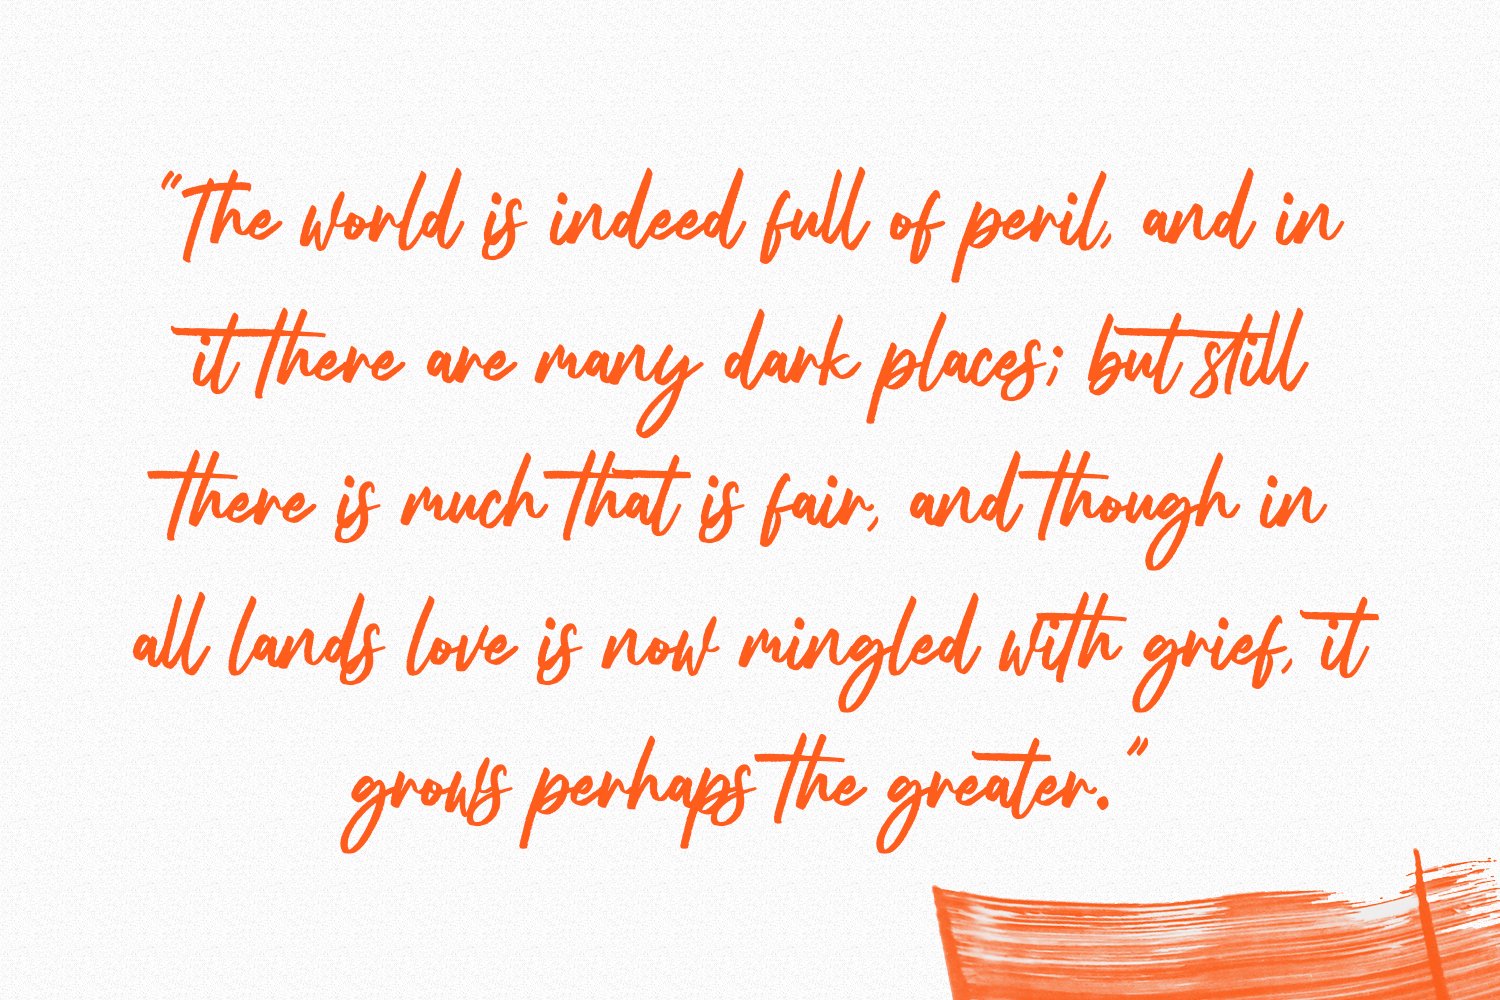 "The world is indeed full of peril, and in
it there are many dark places; but still
there is much that is fair, and though in
all lands love is now mingled with grief, it
grows perhaps the greater."